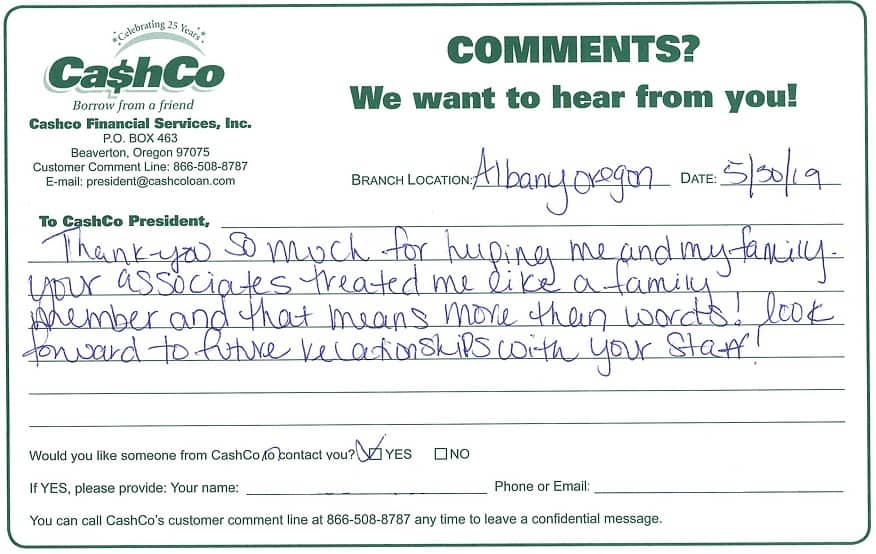 Celebrating 25 Years
Ca$hCo
Borrow from a friend
Cashco Financial Services, Inc.
P.O. BOX 463
Beaverton, Oregon 97075
Customer Comment Line: 866-508-8787
E-mail: president@cashcoloan.com
COMMENTS?
We want to hear from you!
BRANCH LOCATION: Albany oregon DATE: 5/30/19
To CashCo President,
Thank-you so much for huping me and my family.
your associates treated me like a family
member and that means more than words! look
forward to future relationships with your Staff!
Would you like someone from CashCo to contact you? YES NO
If YES, please provide: Your name: Phone or Email:
You can call CashCo's customer comment line at 866-508-8787 any time to leave a confidential message.